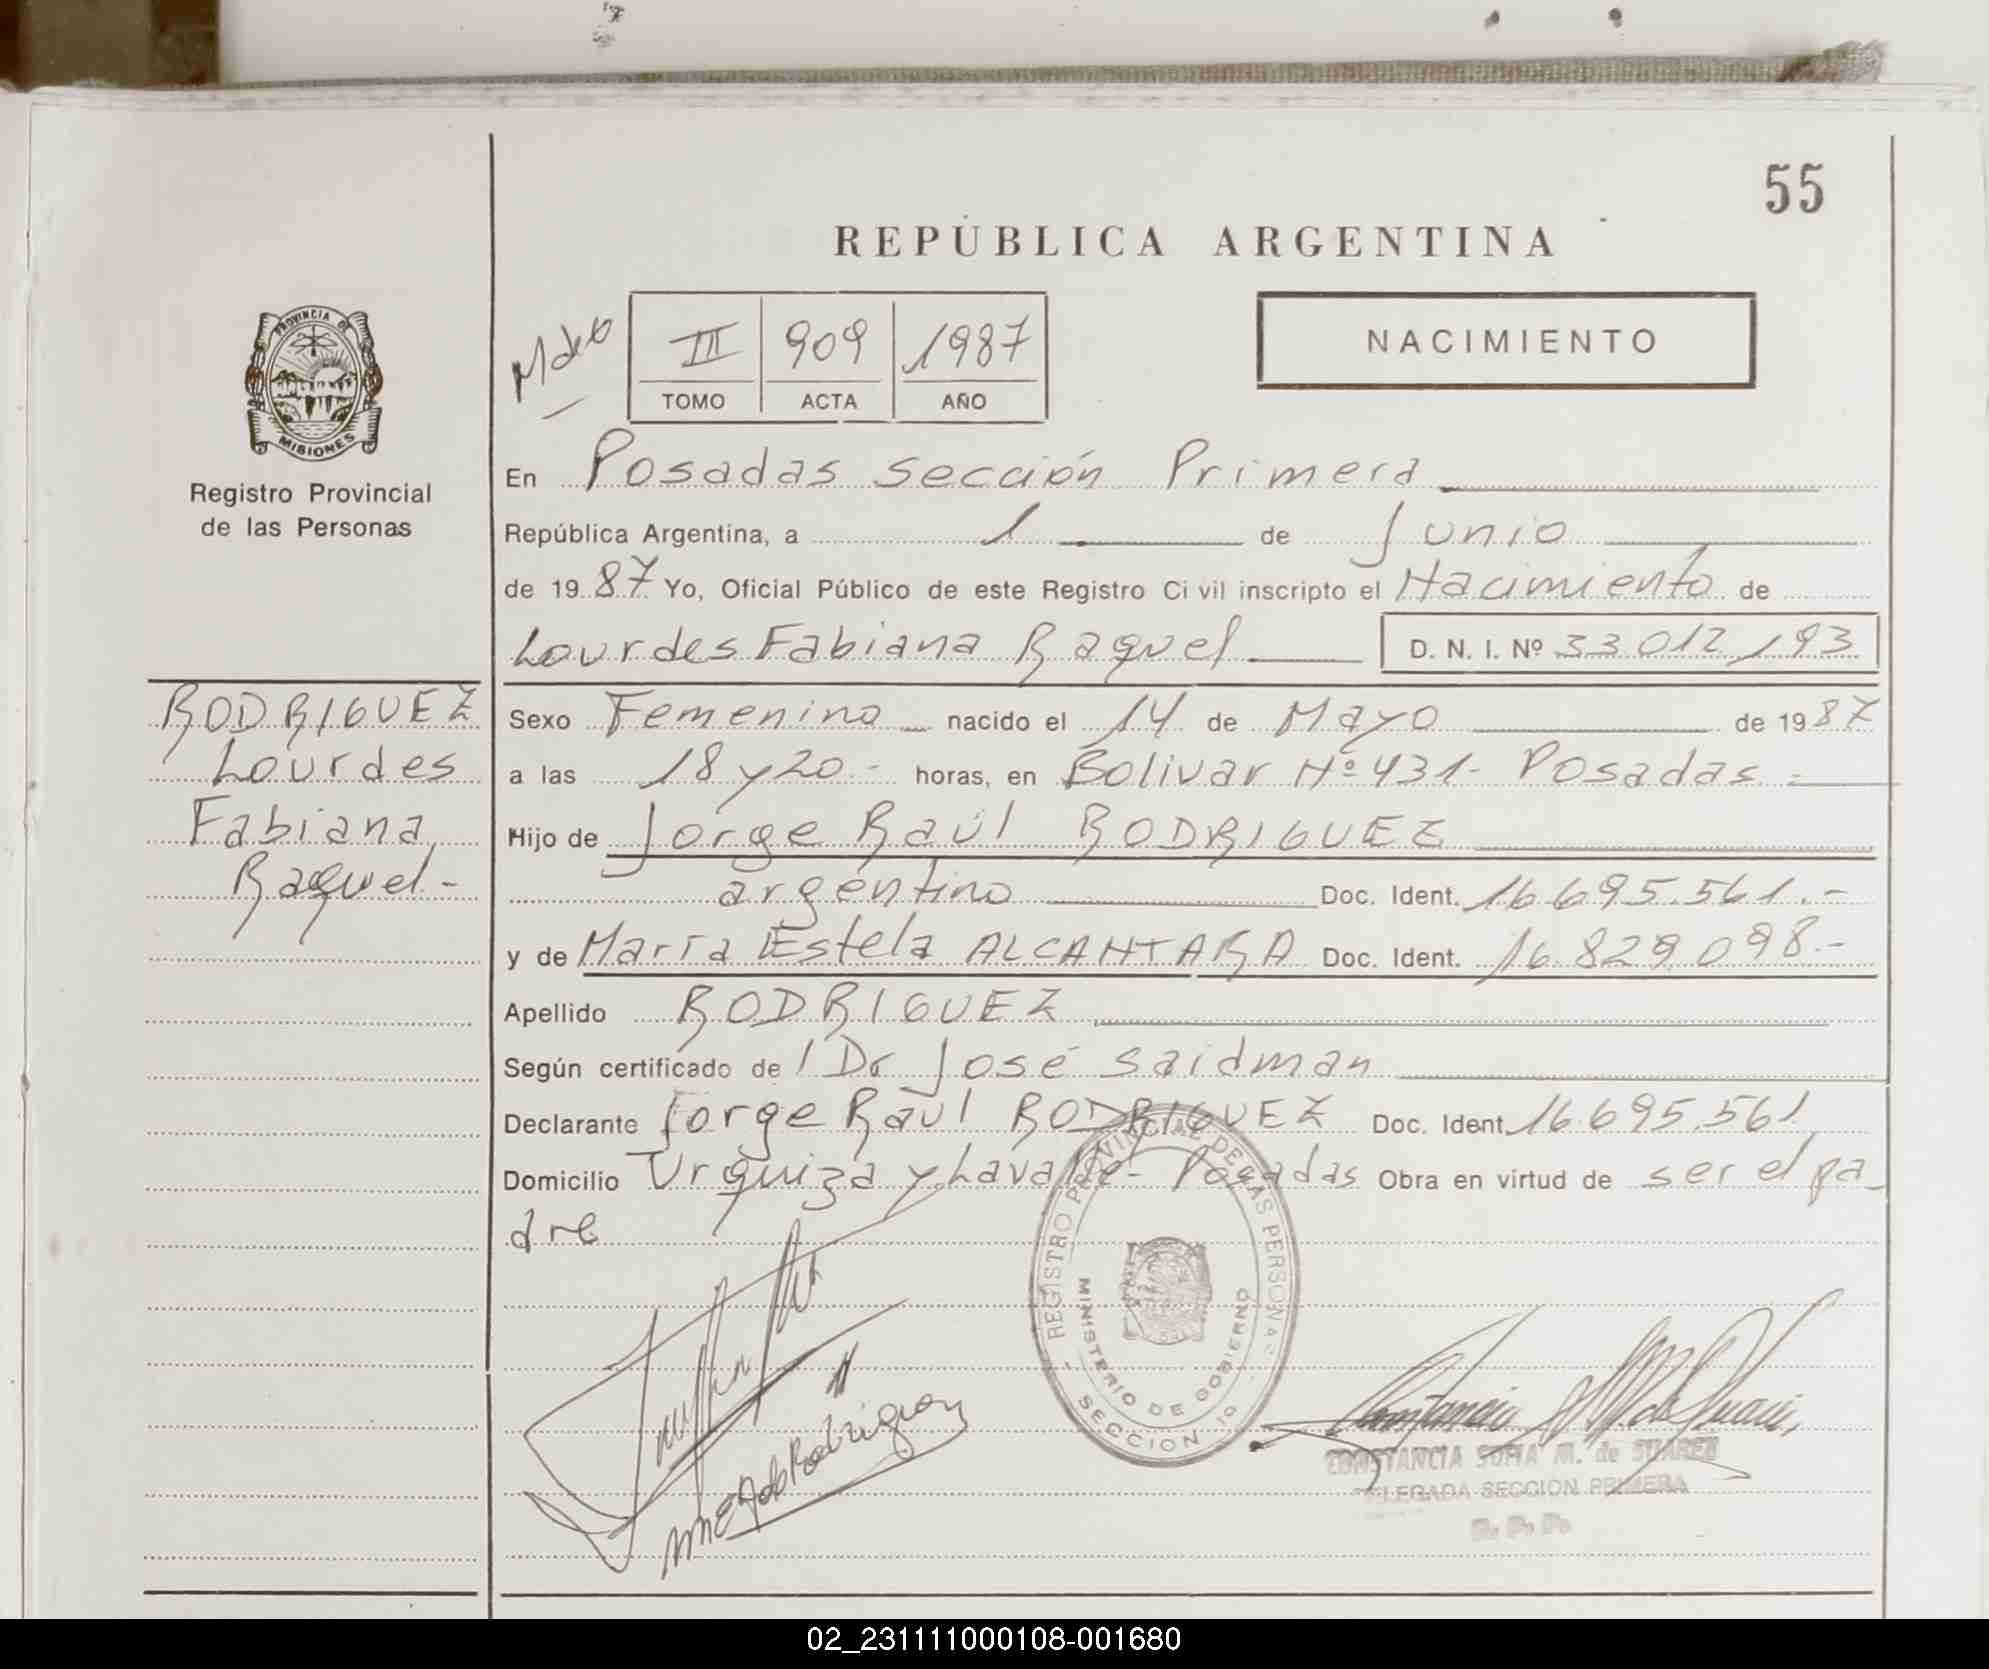 55
REPÚBLICA ARGENTINA
PROVINCIA DE
MISIONES
Registro Provincial
de las Personas
III 909 1987
TOMO ACTA AÑO
NACIMIENTO
En Posadas Sección Primera
República Argentina, a 1 de Junio
de 1987 Yo, Oficial Público de este Registro Civil inscripto el Nacimiento de
Lourdes Fabiana Raquel D. N. I. Nº 33.012.193
RODRIGUEZ
Lourdes
Fabiana
Raquel-
Sexo Femenino nacido el 14 de Mayo de 1987
a las 18 y 20.- horas, en Bolivar Nº 431- Posadas.-
Hijo de Jorge Raúl RODRIGUEZ
argentino Doc. Ident. 16.695.561.-
y de María Estela ALCANTARA Doc. Ident. 16.829.098.-
Apellido RODRIGUEZ
Según certificado de l Dr José Saidman
Declarante Jorge Raúl RODRIGUEZ Doc. Ident. 16.695.561.
Domicilio Urquiza y Lavalle- Posadas Obra en virtud de ser el pa-
dre
REGISTRO PROVINCIAL DE LAS PERSONAS
MINISTERIO DE GOBIERNO
SECCION 1º
CONSTANCIA SOFIA M. de SUAREZ
DELEGADA SECCION PRIMERA
R. P. P.
02_231111000108-001680